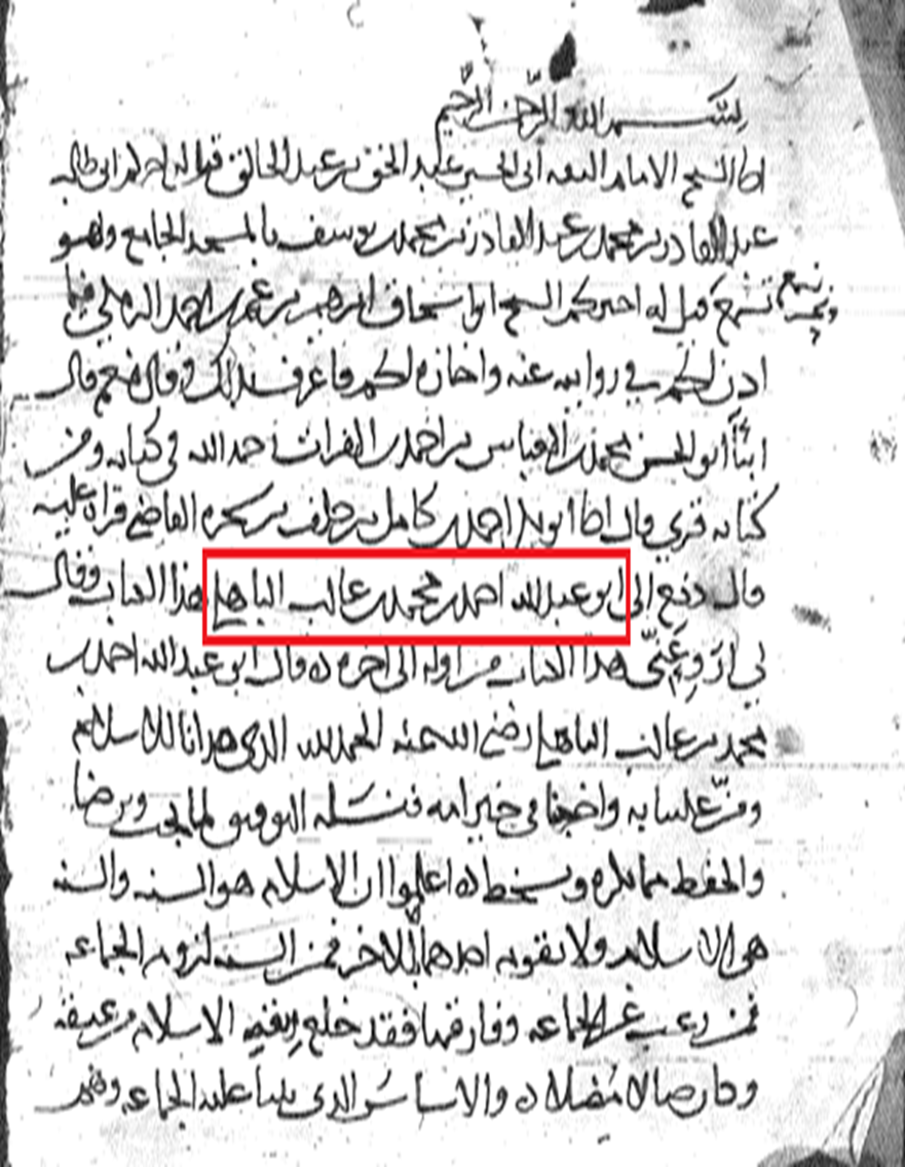 بسم الله الرحمن الرحيم
انا الشيخ الامام الفقه ابى الحسين عبد الحق بن عبد الخالق قيل له اخبركم ابى طالب
عبد القادر بن محمد بن عبد القادر بن محمد بن يوسف بالمسجد الجامع وهو
يسمع قيل له اخبركم الشيخ ابو اسحاق ابرهيم بن عمر بن احمد البرمكي فيما
اذن لكم في روايته عنه واجازه لكم فاعرف بذلك وقال نعم قال
ابنأ ابو الحسن محمد بن العباس بن احمد بن الفرات رحمه الله في كتابه ومن
كتابه قرى قال انا ابو بكر احمد بن كامل بن خلف بن شجره القاضي قراة عليه
قال دفع الى ابو عبد الله احمد بن محمد بن غالب الباهلي هذا الكتاب وقال
لي ارو عنى هذا الكتاب من اوله الى اخره قال ابو عبد الله احمد بن
محمد بن غالب الباهلي رضي الله عنه الحمد لله الذى هدانا للاسلام
ومن علينا به واخرجنا في خير امه فنسله التوفيق لما يحب ويرضا
والحفظ مما يكره ويسخط اعلموا ان الاسلام هو السنه والسنه
هى الاسلام ولا يقوم احدهما الا بالاخر فمن السنه لزوم الجماعه
فمن رغب غير الجماعه وفارقها فقد خلع ربقه الاسلام من عنقه
وكان ضالا مضلا والاساس الذى بينا عليه الجماعه وهم